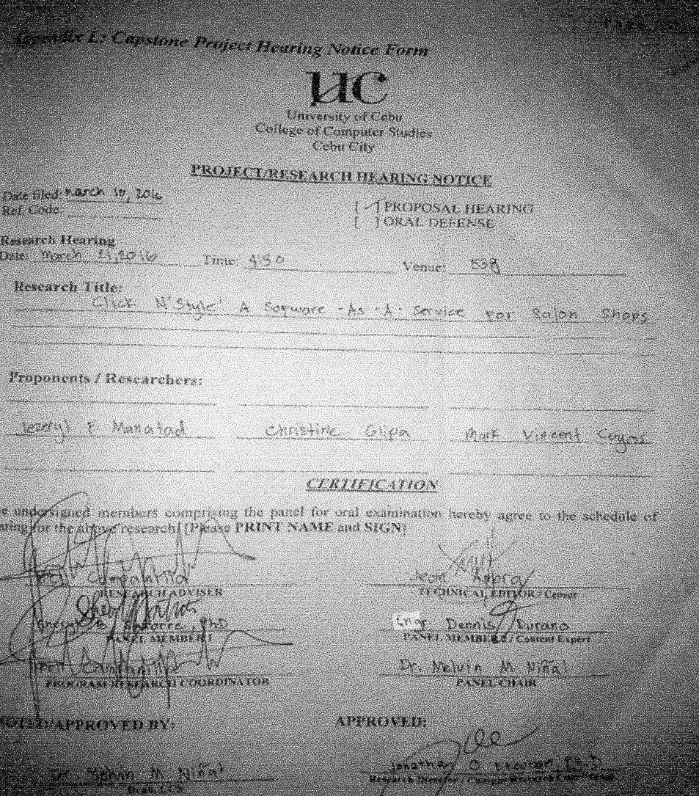 Appendix L: Capstone Project Hearing Notice Form
UC
University of Cebu
College of Computer Studies
Cebu City
PROJECT/RESEARCH HEARING NOTICE
Date filed: March 18, 2016
Ref. Code:
[ ✓ ] PROPOSAL HEARING
[ ] ORAL DEFENSE
Research Hearing
Date: March 21, 2016 Time: Venue: 538
Research Title:
Click N' Style' A Sopware -As -A- Service for Salon Shops
Proponents / Researchers:
Jezeryl F Manatad Christine Glipa Mark Vincent
CERTIFICATION
e undersigned members comprising the panel for oral examination hereby agree to the schedule of
aring for the above research! [Please PRINT NAME and SIGN]
RESEARCH ADVISER
TECHNICAL EDITOR / Censor
PhD Engr Dennis Durano
PANEL MEMBER PANEL MEMBER / Content Expert
Dr. Melvin M. Niñal
PROGRAM RESEARCH COORDINATOR PANEL CHAIR
NOTED/APPROVED BY: APPROVED:
Dr. Melvin M. Niñal Jonathan O.
Dean, CCS Research Director /